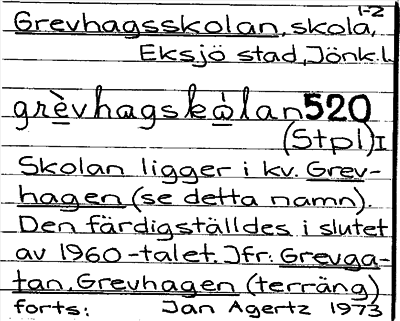 1-2
Grevhagsskolan, skola,
Eksjö stad, Jönk.l.
grèvhagskàlan 520
(Stpl) I
Skolan ligger i kv. Grev-
hagen (se detta namn).
Den färdigställdes i slutet
av 1960-talet. Jfr. Grevga-
tan, Grevhagen (terräng)
forts: Jan Agertz 1973